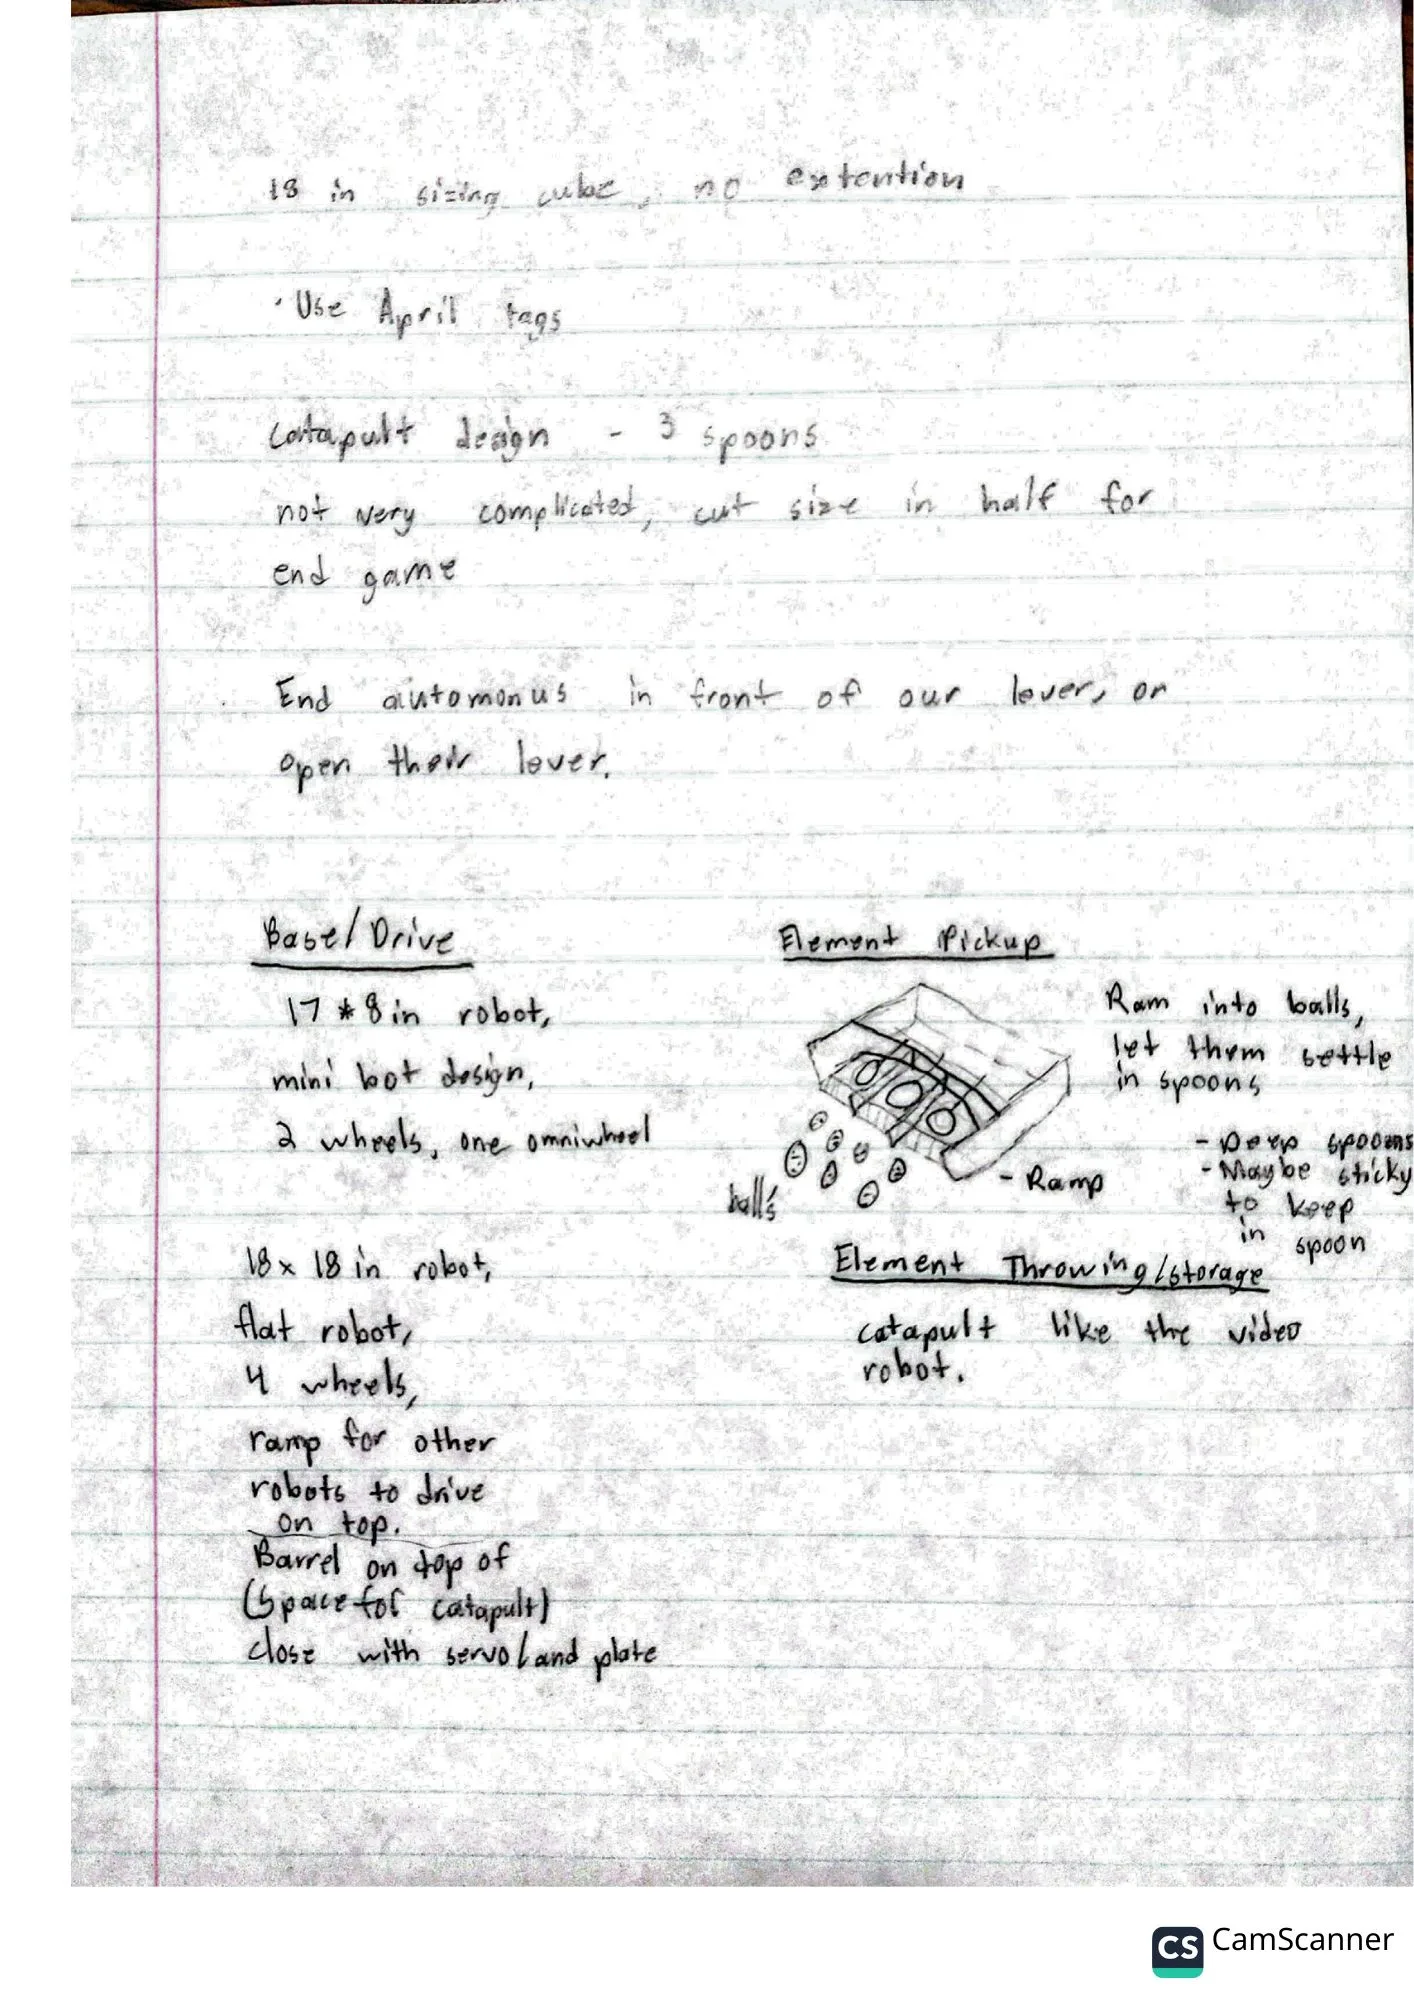 18 in sizing cube, no extention
· Use April tags
catapult design - 3 spoons
not very complicated, cut size in half for
end game
End automonus in front of our lever, or
open their lever.
Base/Drive
17 * 8 in robot,
mini bot design,
2 wheels, one omniwheel
18 x 18 in robot,
flat robot,
4 wheels,
ramp for other
robots to drive
on top.
Barrel on top of
(space for catapult)
close with servo/and plate
Element Pickup
Ram into balls,
let them settle
in spoons
- Deep spoons
- Maybe sticky
to keep
in spoon
balls
- Ramp
Element Throwing/storage
catapult like the video
robot.
CS CamScanner